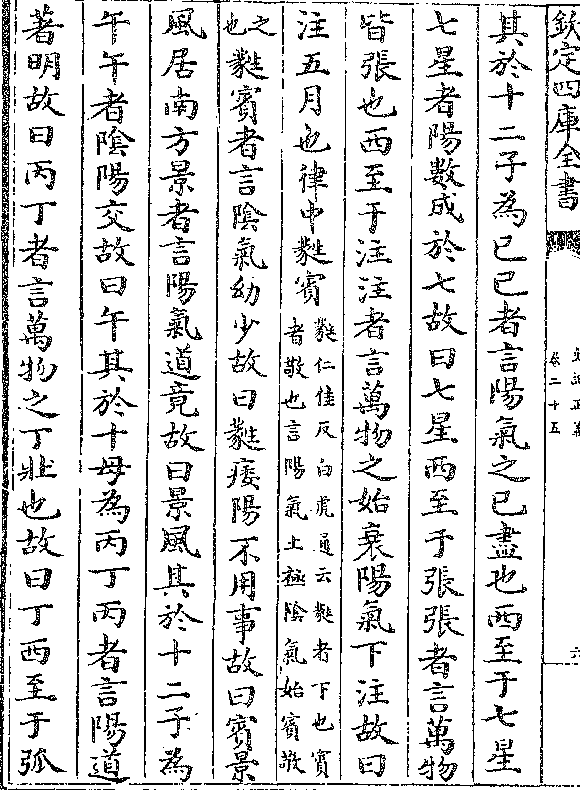 欽定四庫全書
史記正義
卷二十五
六
其於十二子為巳巳者言陽氣之已盡也西至于七星
七星者陽數成於七故曰七星西至于張張者言萬物
皆張也西至于注注者言萬物之始衰陽氣下注故曰
注五月也律中蕤賓蕤仁佳反白虎通云蕤者下也賓
者敬也言陽氣上極陰氣始賓敬
之
也蕤賓者言陰氣幼少故曰蕤痿陽不用事故曰賓景
風居南方景者言陽氣道竟故曰景風其於十二子為
午午者陰陽交故曰午其於十母為丙丁丙者言陽道
著明故曰丙丁者言萬物之丁壯也故曰丁西至于弧